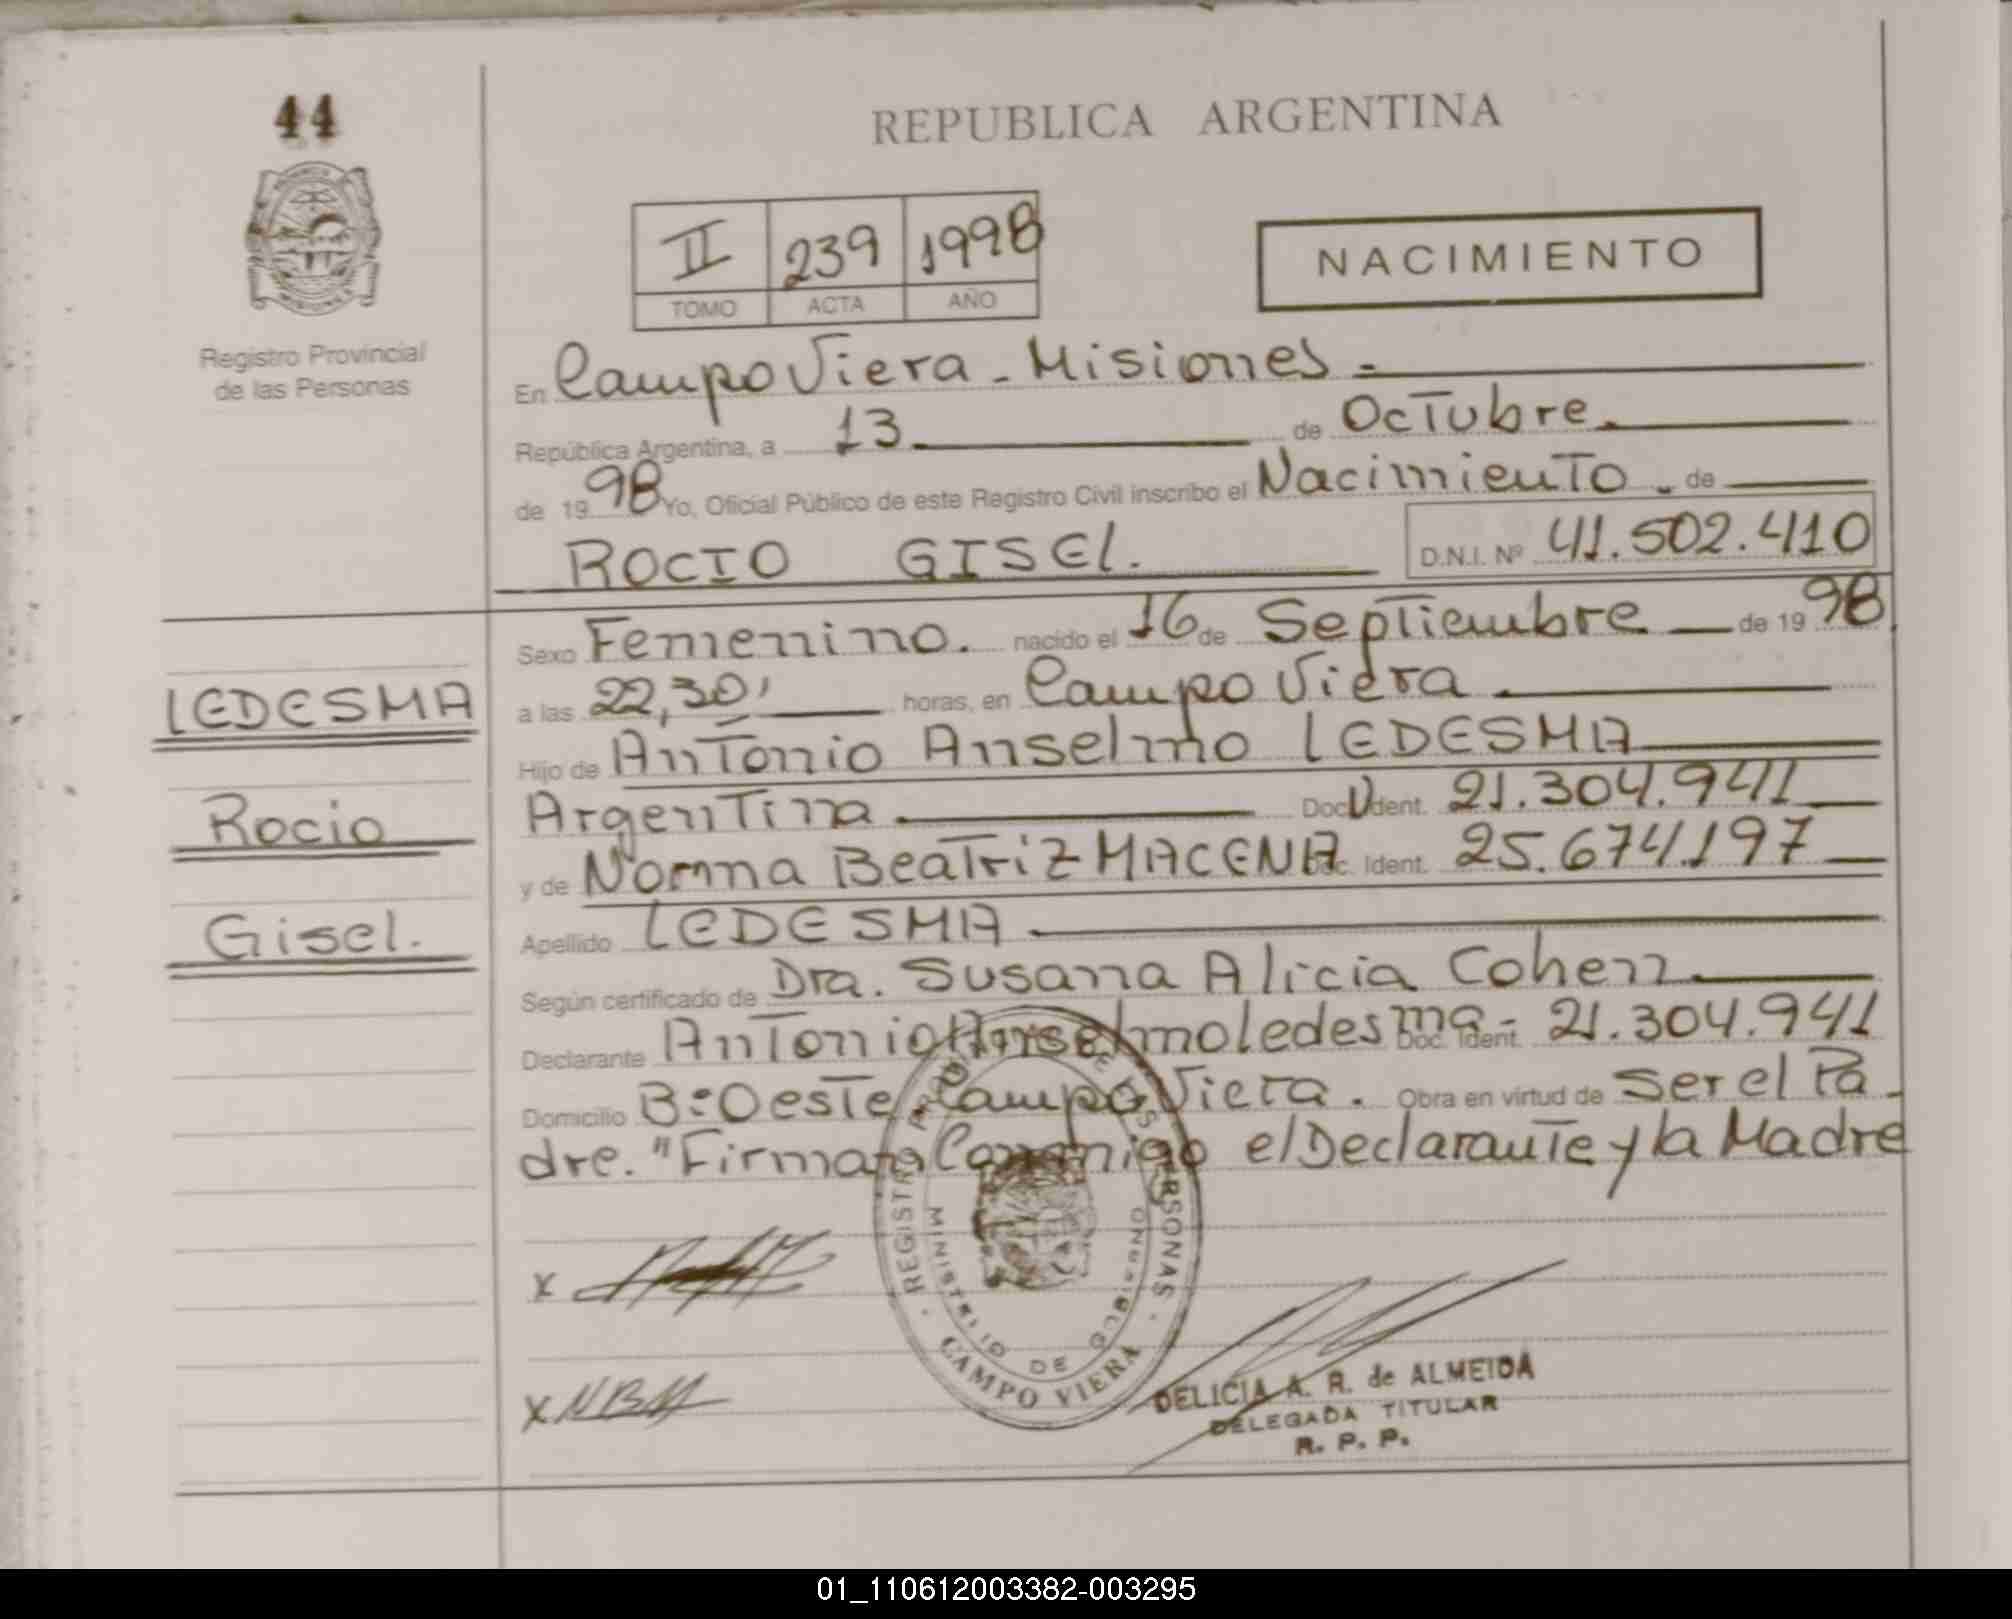 44
REPUBLICA ARGENTINA
II 239 1998
TOMO ACTA AÑO
NACIMIENTO
Registro Provincial
de las Personas
En Campo Viera - Misiones.
República Argentina, a 13 de Octubre.
de 1998 Yo, Oficial Público de este Registro Civil inscribo el Nacimiento. de
ROCIO GISEL. D.N.I. Nº 41.502.410
Sexo Femenino. nacido el 16 de Septiembre de 1998
LEDESMA
a las 22,30' horas, en Campo Viera.
Hijo de Antonio Anselmo LEDESMA
Rocio
Argentina. Doc. Ident. 21.304.941
y de Norma Beatriz MACENA Doc. Ident. 25.674.197
Gisel.
Apellido LEDESMA
Según certificado de Dra. Susana Alicia Cohen
Declarante Antonio Anselmo Ledesma - Doc. Ident. 21.304.941
Domicilio Bº Oeste. Campo Viera. Obra en virtud de Ser el Pa-
dre. "Firman Conmigo el Declarante y la Madre
x
x NBM
REGISTRO DE LAS PERSONAS
MINISTERIO DE GOBIERNO
CAMPO VIERA
DELICIA A. R. de ALMEIDA
DELEGADA TITULAR
R. P. P.
01_110612003382-003295